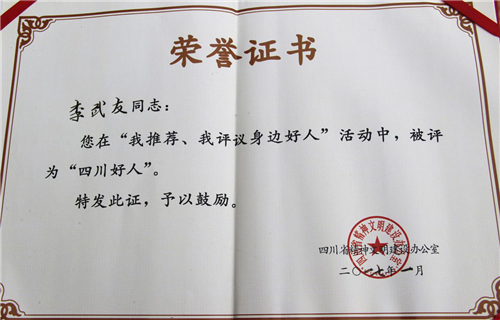 荣誉证书
李武友同志：
您在“我推荐、我评议身边好人”活动中，被评
为“四川好人”。
特发此证，予以鼓励。
四川省精神文明建设办公室
二〇一七年一月